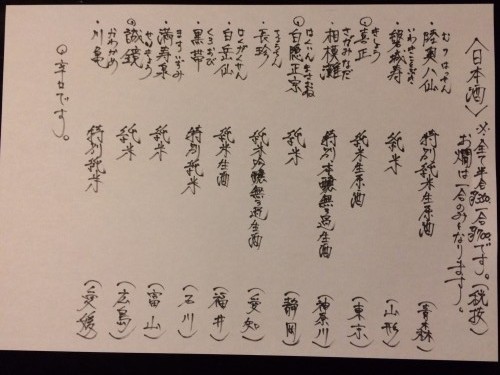 〈日本酒〉※全て半合¥350、一合¥700です。(税抜)
お燗は一合のみとなります。
むつはっせん
・陸奥八仙 特別純米生原酒 (青森)
いわきことぶき
・磐城寿 純米 (山形)
きしょう
◎喜正 純米生原酒 (東京)
さがみなだ
・相模灘 特別本醸無ろ過生酒 (神奈川)
はくいんまさむね
◎白隠正宗 純米 (静岡)
ちょうちん
・長珍 純米吟醸無ろ過生酒 (愛知)
はくがくせん
・白岳仙 純米生酒 (福井)
くろおび
・黒帯 特別純米 (石川)
ますいずみ
・満寿泉 純米 (富山)
せいきょう
◎誠鏡 純米 (広島)
かわかめ
・川亀 特別純米 (愛媛)
◎辛口です。